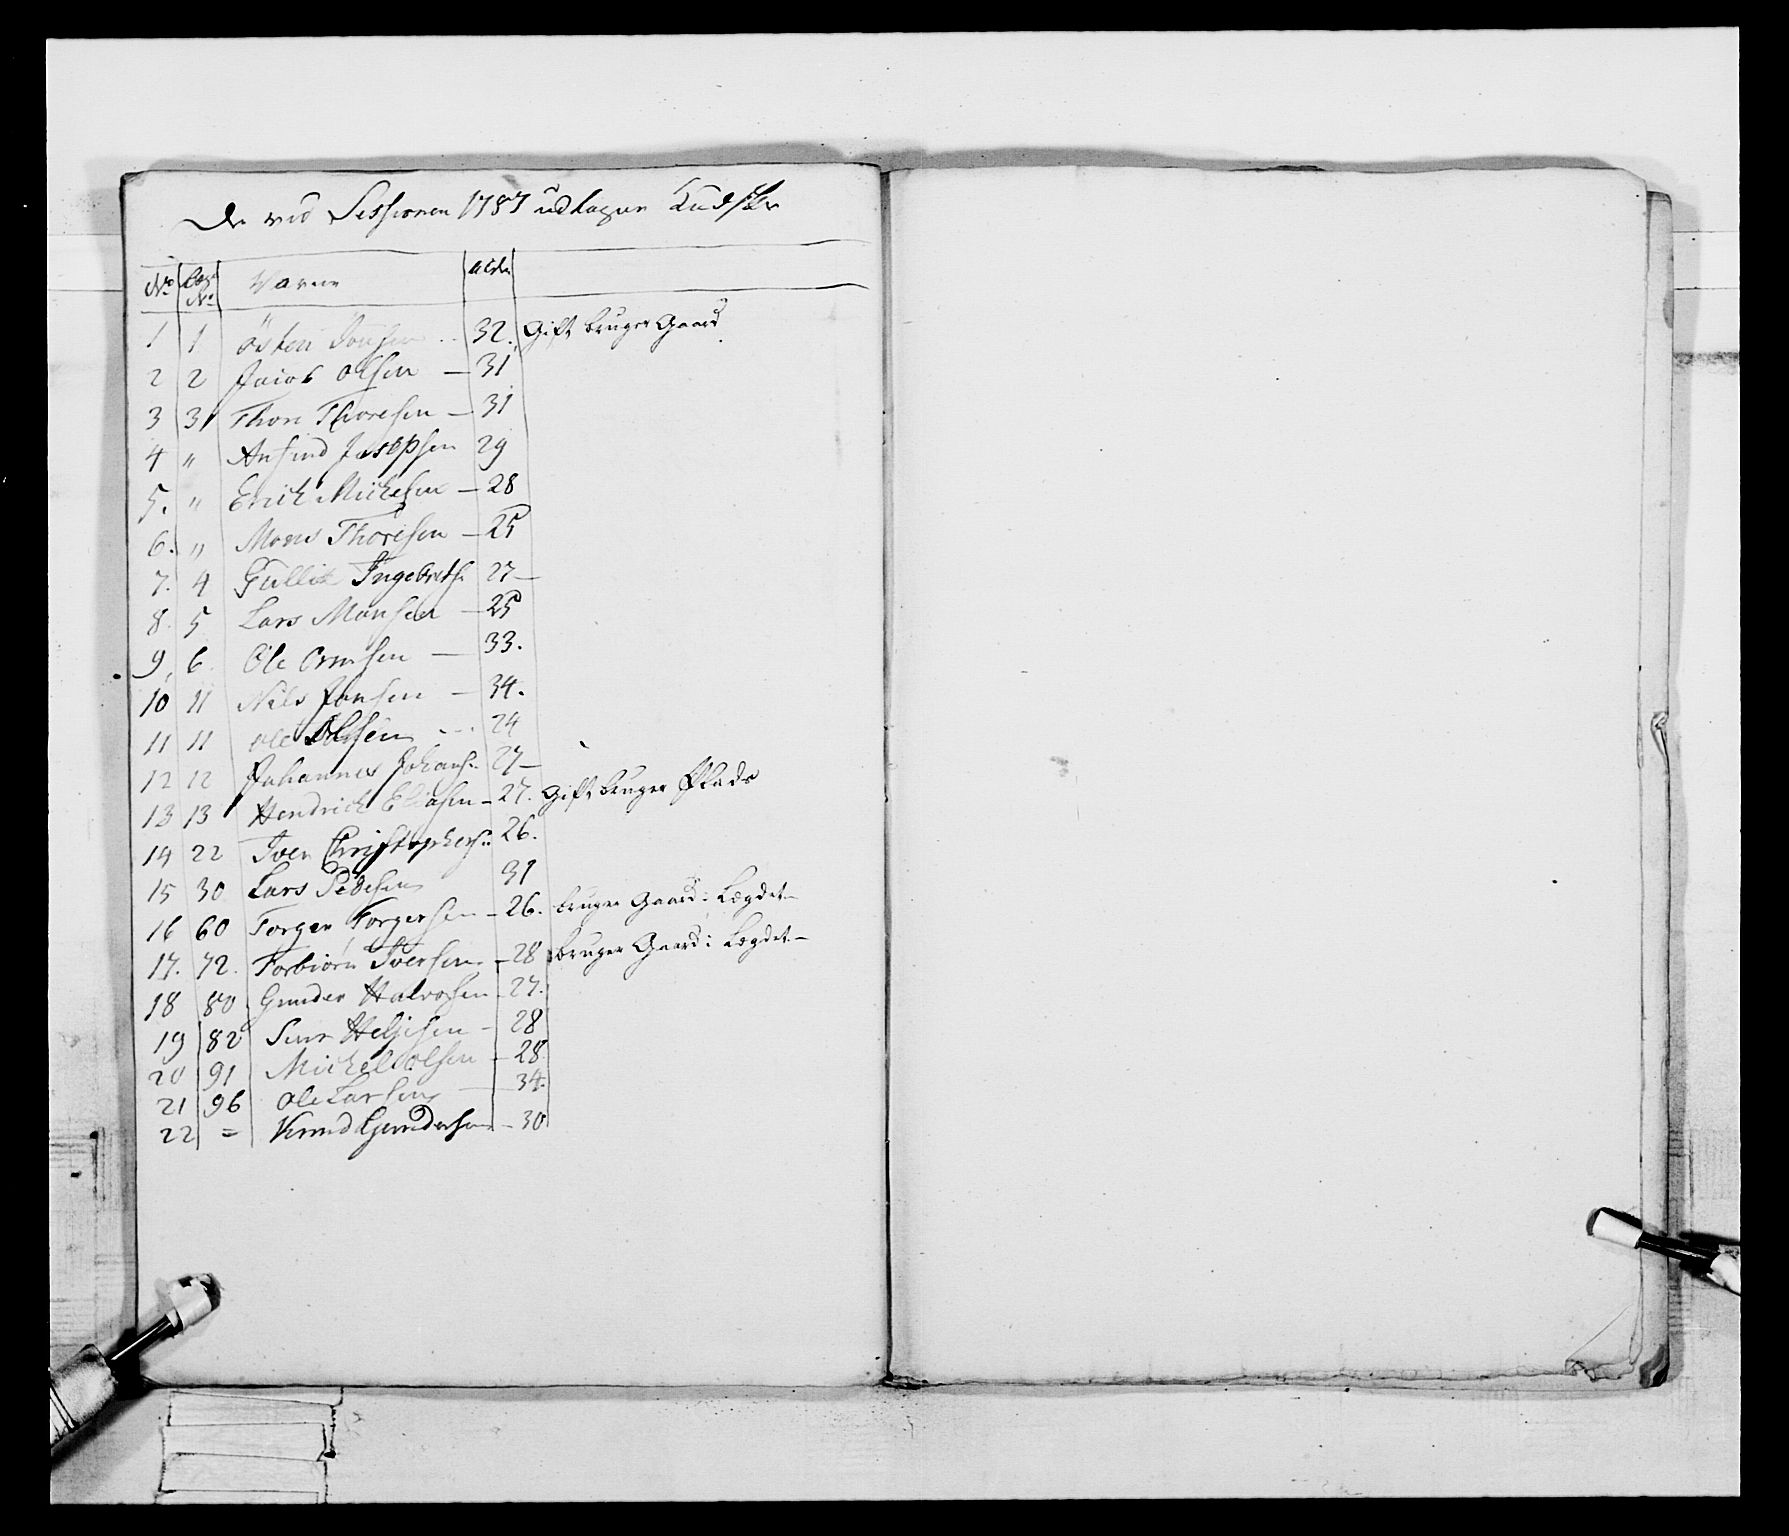 De ved Sessionen 1787 udtagne Kudsker
No Læg No Navne Alder
1 1 Østen Jonsen .. 32. Gift bruger Gaard
2 2 Jacob Olsen — 31
3 3 Thore Thoresen — 31
4 " Anfind Josepsen 29
5. " Erich Michelsen — 28
6. " Mons Thoresen — 25
7. 4 Gullik Ingebretss 27 —
8. 5 Lars Monsen — 25
9. 6. Ole Ormsen — 33.
10 11 Nils Jonsen — 34.
11 11 Ole Olsen ... 24
12 12 Johannes Johans: 27 —
13 13 Hendrich Eliasen — 27. Gift bruger Plads
14 22 Iver Christophers: 26.
15 30 Lars Pedersen 31
16 60 Torger Torgersen — 26. bruger Gaard i Lægdet —
17. 72. Torbiörn Iversen — 28 bruger Gaard i Lægdet —
18 80 Gunder Halvorsen — 27.
19 82 Siur Helgesen — 28
20 91 Michel Olsen — 28
21 96 Ole Larsen — 34.
22 = Knud Gundersen — 30